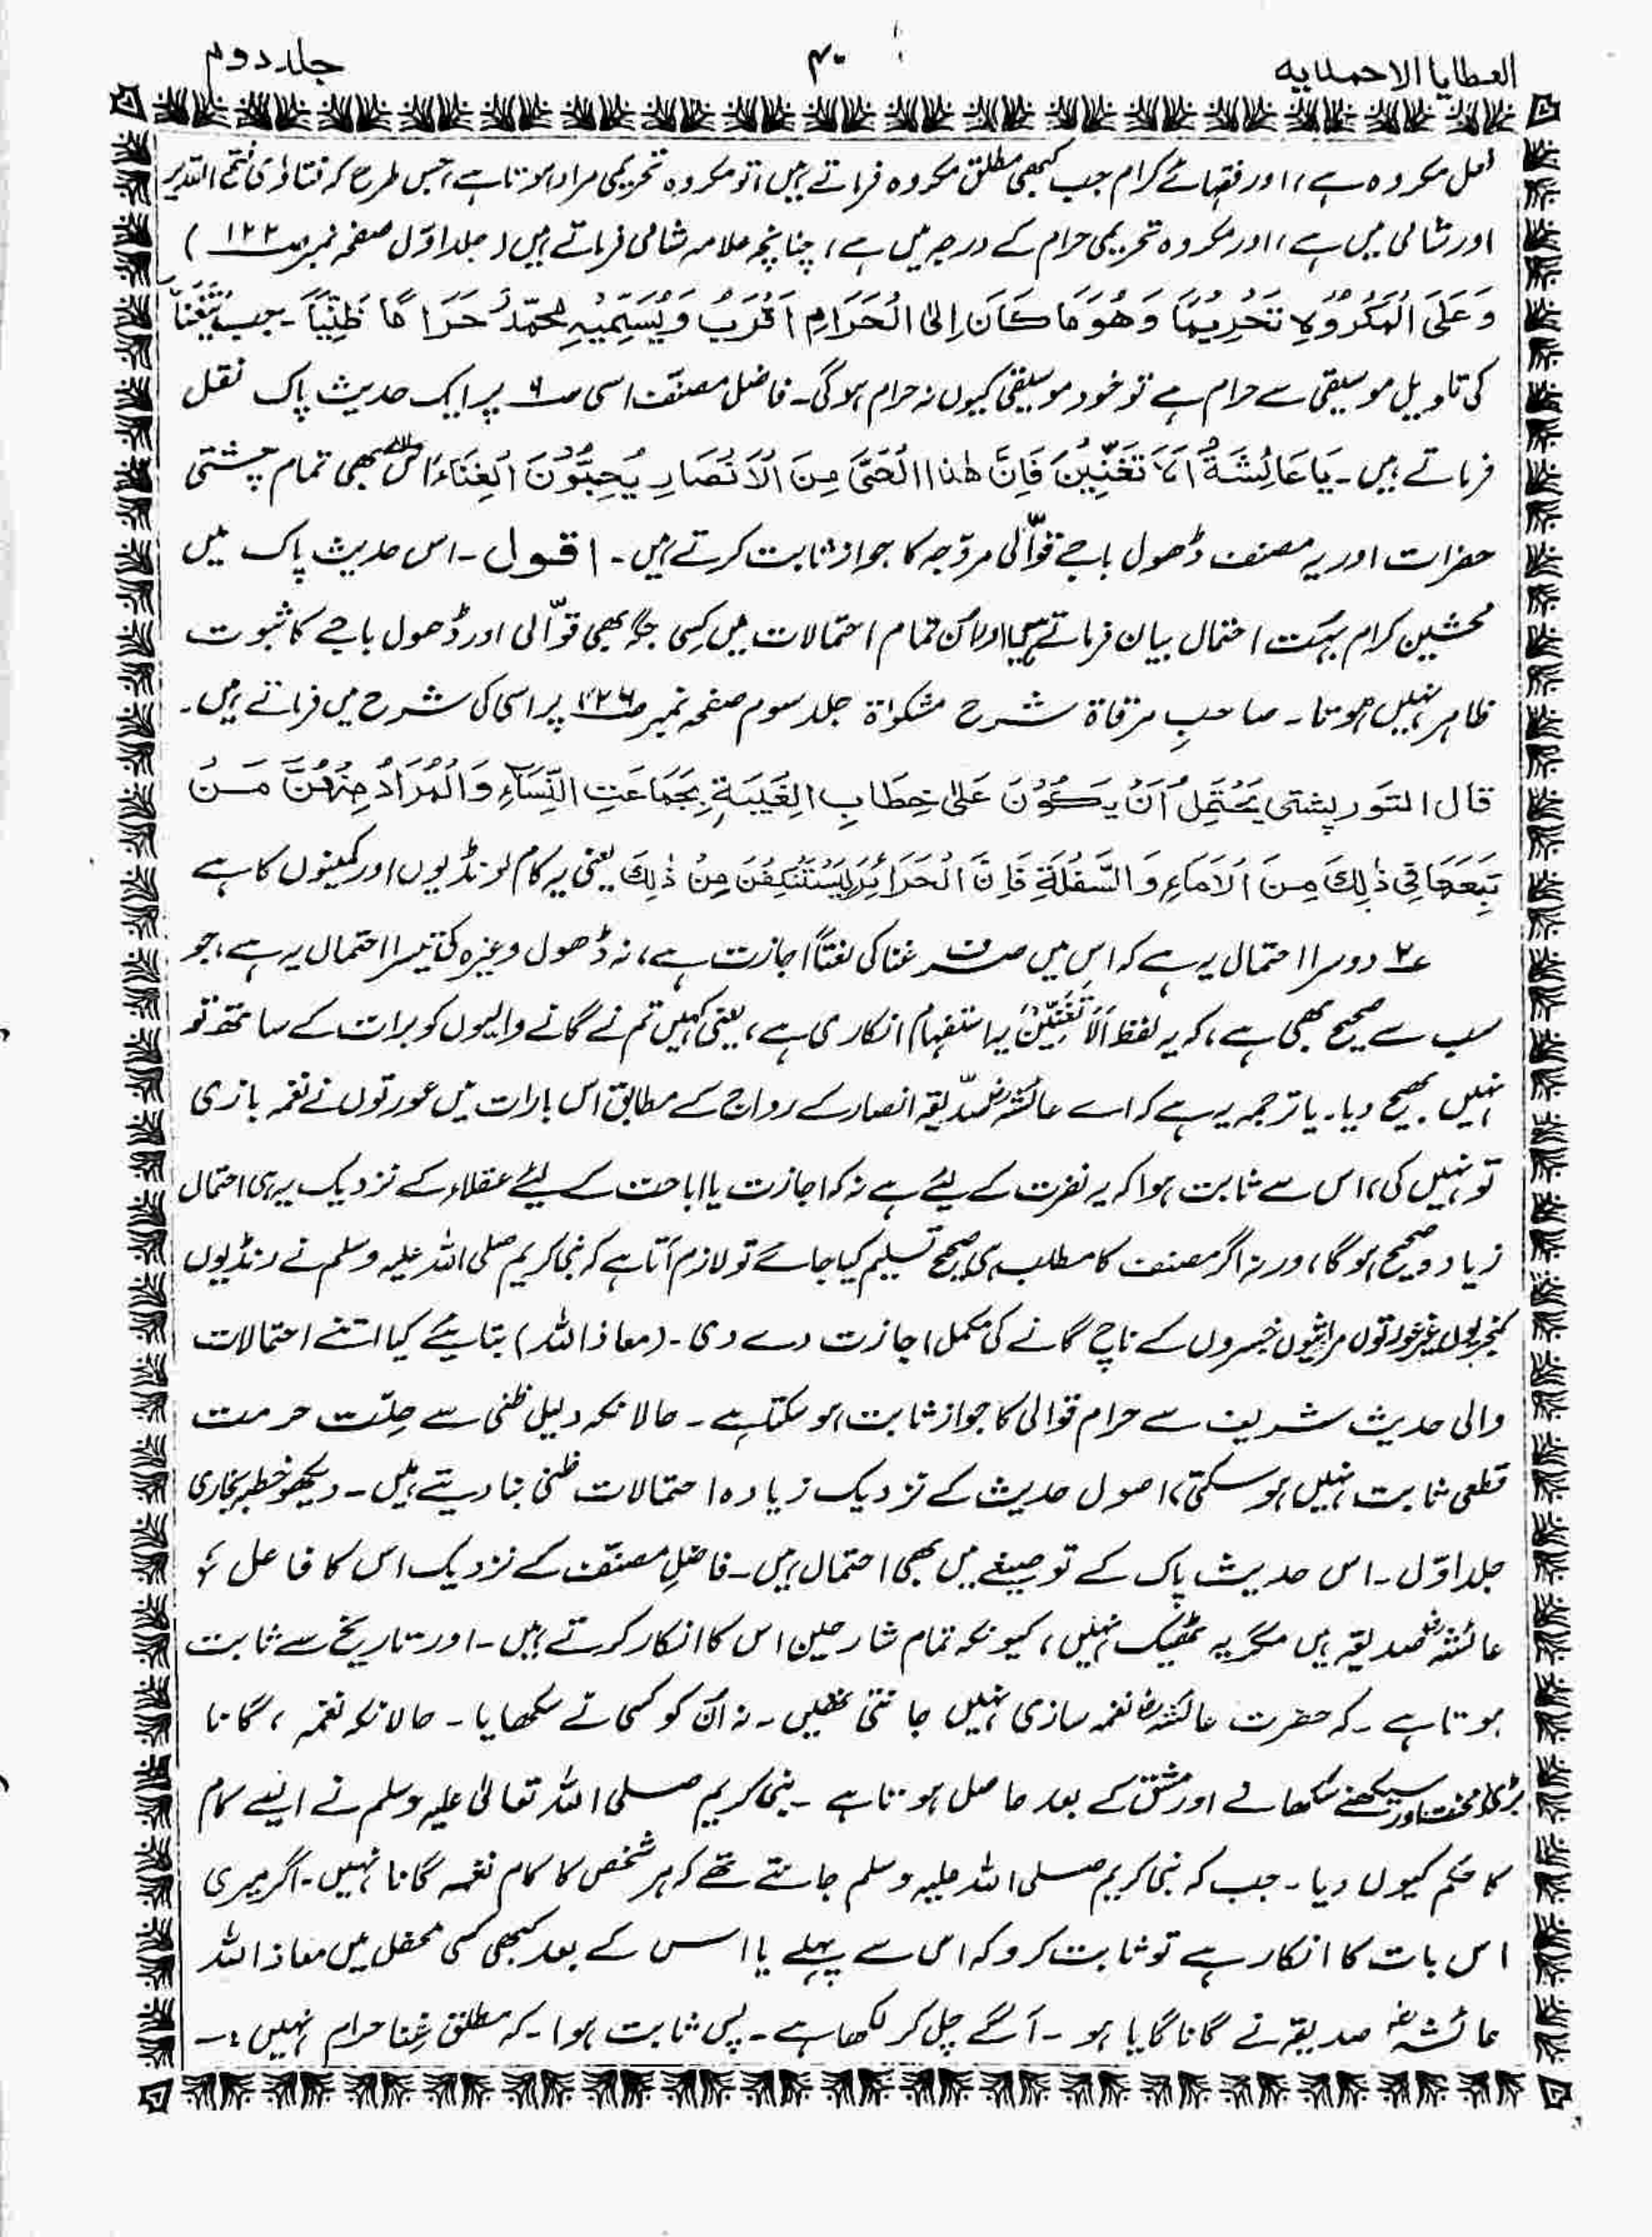 العطایا الاحمدیہ ۴۰ جلد دوم
فعل مکروہ ہے،، اور فقہائے کرام جب کبھی مطلق مکروہ فرماتے ہیں، تو مکروہ تحریمی مراد ہوتا ہے، جس طرح کہ فتاوٰی فتح القدیر
اور شامی میں ہے،، اور مکروہ تحریمی حرام کے درجہ میں ہے، چنانچہ علامہ شامی فرماتے ہیں (جلد اوّل صفحہ نمبر ص۱۲۲)
وَعَلَی الْمَکْرُوْہِ تَحْرِیْمًا وَھُوَ مَا کَانَ اِلیٰ الْحَرَامِ اَقْرَبُ وَیُسَمِّیْہِ مُحَمَّدٌ حَرَامًا ظَنِّیًّا ۔ جب یَتَغَنَّا
کی تاویل موسیقی سے حرام ہے تو خود موسیقی کیوں نہ حرام ہو گی۔ فاضل مصنّف اسی ص۶ پر ایک حدیث پاک نقل
فرماتے ہیں ۔ یَا عَائِشَۃُ اَلَا تَغَنِّیْنَ فَاِنَّ ھٰذا الْحَیَّ مِنَ الْاَنْصَارِ یُحِبُّوْنَ الْغِنَاءَ اس سے بھی تمام چشتی
حضرات اور یہ مصنف ڈھول باجے قوّالی مروّجہ کا جواز ثابت کرتے ہیں ۔ اقول ۔ اس حدیث پاک میں
محشین کرام بہت احتمال بیان فرماتے ہیں اور ان تمام احتمالات میں کسی جگہ بھی قوّالی اور ڈھول باجے کا ثبوت
ظاہر نہیں ہوتا ۔ صاحبِ مرقاۃ شرح مشکوٰۃ جلد سوم صفحہ نمبر ص۴۲۶ پر اسی کی شرح میں فرماتے ہیں ۔
قال التورپشتی یَحْتَمِلُ اَنْ یَکُوْنَ عَلیٰ خِطَابِ الْغَیْبَۃِ بِجَمَاعَتِ النِّسَاءِ وَالْمُرَادُ مِنْھُنَّ مَنْ
تَبِعَھَا فِی ذٰلِکَ مِنَ الْاَمَاءِ وَالسَّفْلَۃِ فَاِنَّ الْحَرَائِرَ یَسْتَنْکِفْنَ مِنْ ذٰلِکَ یعنی یہ کام لونڈیوں اور کمینوں کا ہے
ع۲ دوسرا احتمال یہ ہے کہ اس میں صرف غنا کی لغتاً اجازت ہے، نہ ڈھول وغیرہ کی تیسرا احتمال یہ ہے، جو
سب سے صحیح بھی ہے، کہ یہ لفظ اَلَا تَغَنِّیْنَ یہ استفہام انکاری ہے، یعنی کہیں تم نے گانے والیوں کو برات کے ساتھ تو
نہیں بھیج دیا۔ یا ترجمہ یہ ہے کہ اے عائشہؓ صدّیقہ انصار کے رواج کے مطابق اس بارات میں عورتوں نے نغمہ بازی
تو نہیں کی،، اس سے ثابت ہوا کہ یہ نفرت کے لیئے ہے نہ کہ اجازت یا اباحت کے لیئے عقلاء کے نزدیک یہ ہی احتمال
زیادہ صحیح ہو گا، ورنہ اگر مصنف کا مطلب ہی صحیح تسلیم کیا جائے تو لازم آتا ہے کہ نبی کریم صلی اللہ علیہ وسلم نے رنڈیوں
کنجریوں غیر عورتوں مراثیوں خسروں کے ناچ گانے کی مکمل اجازت دے دی ۔ (معاذ اللہ) بتایئے کیا اتنے احتمالات
والی حدیث شریف سے حرام قوالی کا جواز ثابت ہو سکتا ہے ۔ حالانکہ دلیل ظنی سے حِلّت حرمت
قطعی ثابت نہیں ہو سکتی،، اصول حدیث کے نزدیک زیادہ احتمالات ظنی بنا دیتے ہیں ۔ دیکھو خطبہ بخاری
جلد اوّل ۔ اس حدیث پاک کے تو صیغے میں بھی احتمال ہیں ۔ فاضلِ مصنّف کے نزدیک اس کا فاعل
عائشہؓ صدیقہ ہیں مگر یہ ٹھیک نہیں، کیونکہ تمام شارحین اس کا انکار کرتے ہیں ۔ اور تاریخ سے ثابت
ہوتا ہے ۔ کہ حضرت عائشہؓ نغمہ سازی نہیں جانتی تھیں ۔ نہ اُن کو کسی نے سکھایا ۔ حالانکہ نغمہ، گانا
بڑی محنت اور سیکھنے سکھانے اور مشق کے بعد حاصل ہوتا ہے ۔ نبی کریم صلی اللہ تعالیٰ علیہ وسلم نے ایسے کام
کا حکم کیوں دیا ۔ جب کہ نبی کریم صلی اللہ علیہ وسلم جانتے تھے کہ ہر شخص کا کام نغمہ گانا نہیں ۔ اگر میری
اس بات کا انکار ہے تو ثابت کرو کہ اس سے پہلے یا اس کے بعد کبھی کسی محفل میں معاذ اللہ
عائشہؓ صدیقہ نے گانا گایا ہو ۔ آگے چل کر لکھا ہے ۔ پس ثابت ہوا ۔ کہ مطلق غِنا حرام نہیں :۔